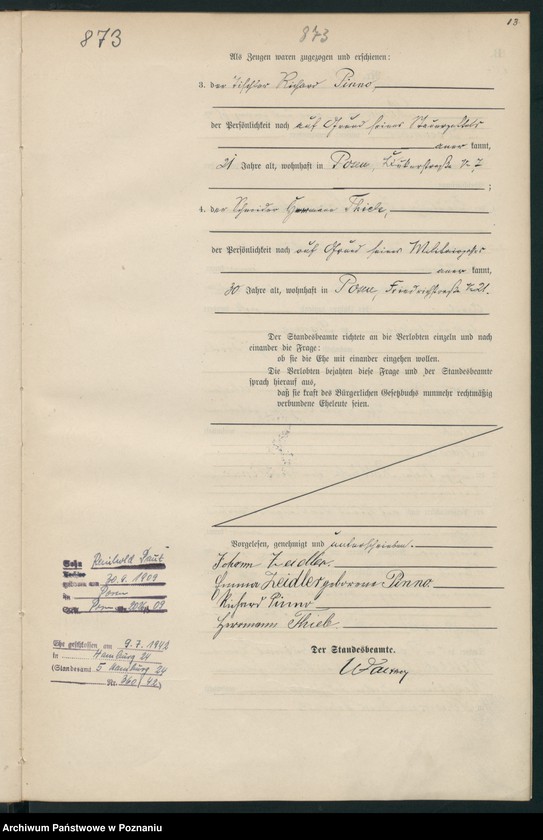 13
873
873
Als Zeugen waren zugezogen und erschienen:
3. der Tischler Richard Pinno,
der Persönlichkeit nach auf Grund seines Steuerzettels
anerkannt,
21 Jahre alt, wohnhaft in Posen, N. 7
;
4. der Schneider Hermann Thiele,
der Persönlichkeit nach auf Grund seines Militairpasses
anerkannt,
30 Jahre alt, wohnhaft in Posen, Friedrichstraße N. 21.
Der Standesbeamte richtete an die Verlobten einzeln und nach
einander die Frage:
ob sie die Ehe mit einander eingehen wollen.
Die Verlobten bejahten diese Frage und der Standesbeamte
sprach hierauf aus,
daß sie kraft des Bürgerlichen Gesetzbuchs nunmehr rechtmäßig
verbundene Eheleute seien.
Vorgelesen, genehmigt und unterschrieben.
Johann Zeidler.
Emma Zeidler geborene Pinno.
Richard Pinno
Hermann Thiele.
Der Standesbeamte.
Sohn Reinhold
geboren am 30.6.1909
in Posen
Ehe geschlossen am 9.7.1942
in Hamburg 24
(Standesamt 5 Hamburg 24
Nr. 260/42)
Archiwum Państwowe w Poznaniu